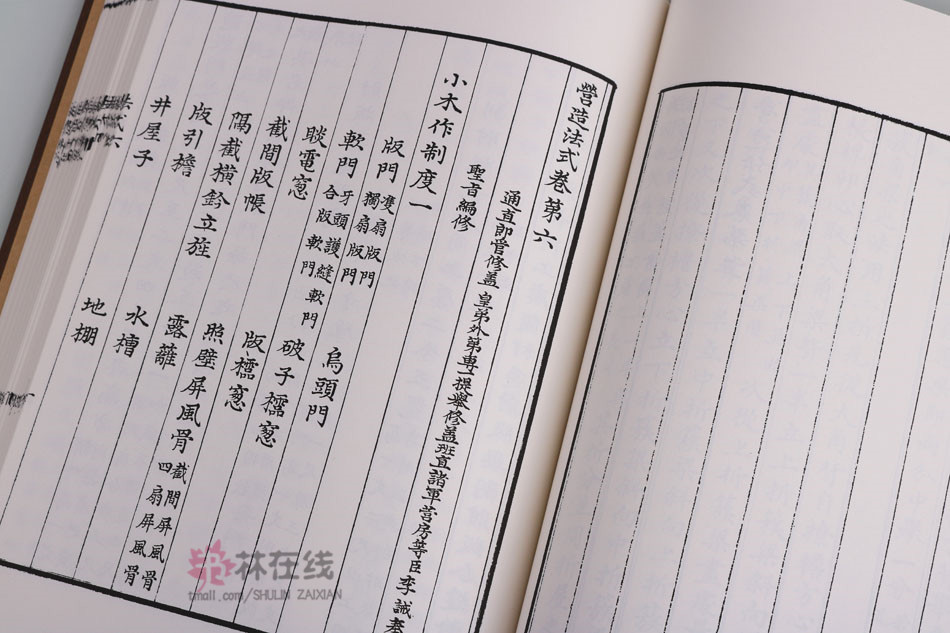 營造法式卷第六
通直郎管修蓋皇弟外第專一提舉修蓋班直諸軍營房等臣李誡奉
聖旨編修
小木作制度一
版門 雙扇版門 獨扇版門
烏頭門
軟門 牙頭護縫軟門 合版軟門
破子櫺窗
睒電窗
版櫺窗
截間版帳
照壁屏風骨 截間屏風骨 四扇屏風骨
隔截橫鈐立旌
露籬
版引檐
水槽
井屋子
地棚
林在线
tmall.com/SHULIN ZAIXIAN